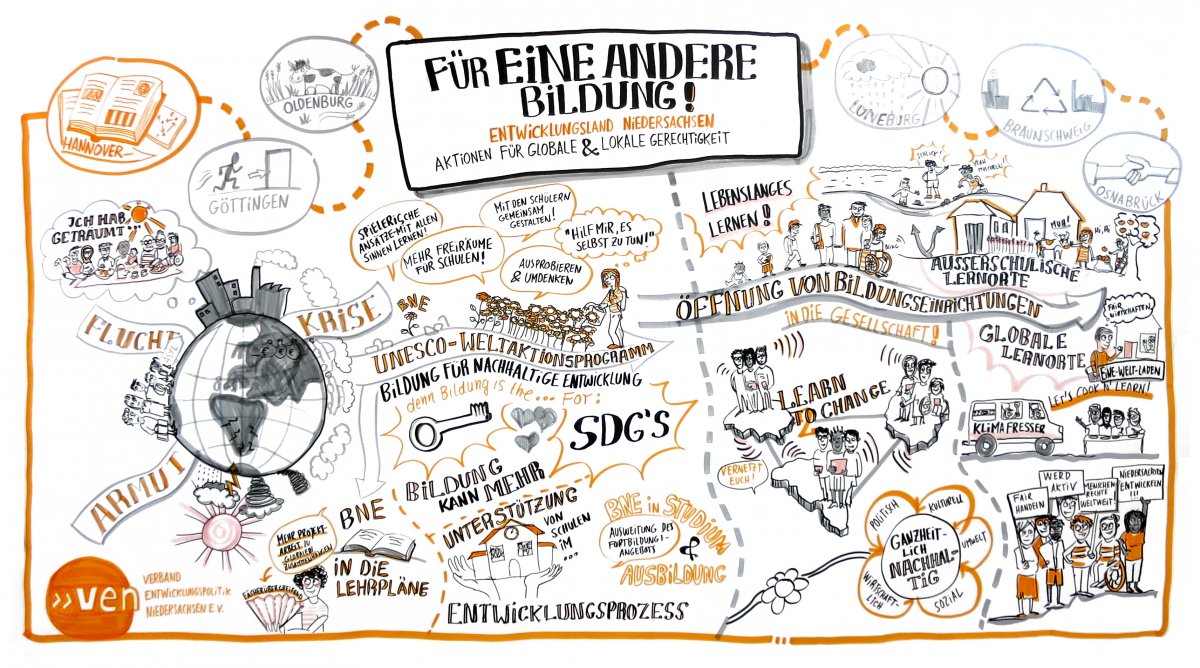 FÜR EINE ANDERE
BILDUNG!
ENTWICKLUNGSLAND NIEDERSACHSEN
AKTIONEN FÜR GLOBALE & LOKALE GERECHTIGKEIT
HANNOVER
OLDENBURG
GÖTTINGEN
LÜNEBURG
BRAUNSCHWEIG
OSNABRÜCK
ICH HAB
GETRÄUMT...
FLUCHT
KRISE
ARMUT
SPIELERISCHE
ANSÄTZE-MIT ALLEN
SINNEN LERNEN!
MIT DEN SCHÜLERN
GEMEINSAM
GESTALTEN!
MEHR FREIRÄUME
FÜR SCHULEN!
"HILF MIR, ES
SELBST ZU TUN!"
AUSPROBIEREN
& UMDENKEN
BNE
UNESCO-WELTAKTIONSPROGRAMM
BILDUNG FÜR NACHHALTIGE ENTWICKLUNG
denn Bildung is the... For:
SDG'S
BILDUNG
KANN MEHR
UNTERSTÜTZUNG
VON
SCHULEN
IM
...
ENTWICKLUNGSPROZESS
BNE
IN DIE
LEHRPLÄNE
MEHR PROJEKT-
ARBEIT ZU
GLOBALEN
ZUSAMMENHÄNGEN
FÄCHERÜBERGREIFEND
BNE in STUDIUM
AUSWEITUNG DES
FORTBILDUNGS-
ANGEBOTS
&
AUSBILDUNG
LEBENSLANGES
LERNEN!
SCHLICK!
MUSCHELN!
MUH!
Hi, Hi
AUSSERSCHULISCHE
LERNORTE
ÖFFNUNG VON BILDUNGSEINRICHTUNGEN
IN DIE GESELLSCHAFT!
LEARN
TO CHANGE
VERNETZT
EUCH!
GLOBALE
LERNORTE
FAIR
WIRTSCHAFTEN
EINE-WELT-LADEN
LET'S COOK N' LEARN!
KLIMAFRESSER
POLITISCH
KULTURELL
UMWELT
SOZIAL
WIRTSCHAFT-
LICH
GANZHEIT-
LICH
NACHHAL-
TIG
FAIR
HANDELN
WERD
AKTIV
MENSCHEN-
RECHTE
WELTWEIT!
NIEDERSACHSEN
ENTWICKELN
!!!
»ven
VERBAND
ENTWICKLUNGSPOLITIK
NIEDERSACHSEN E.V.